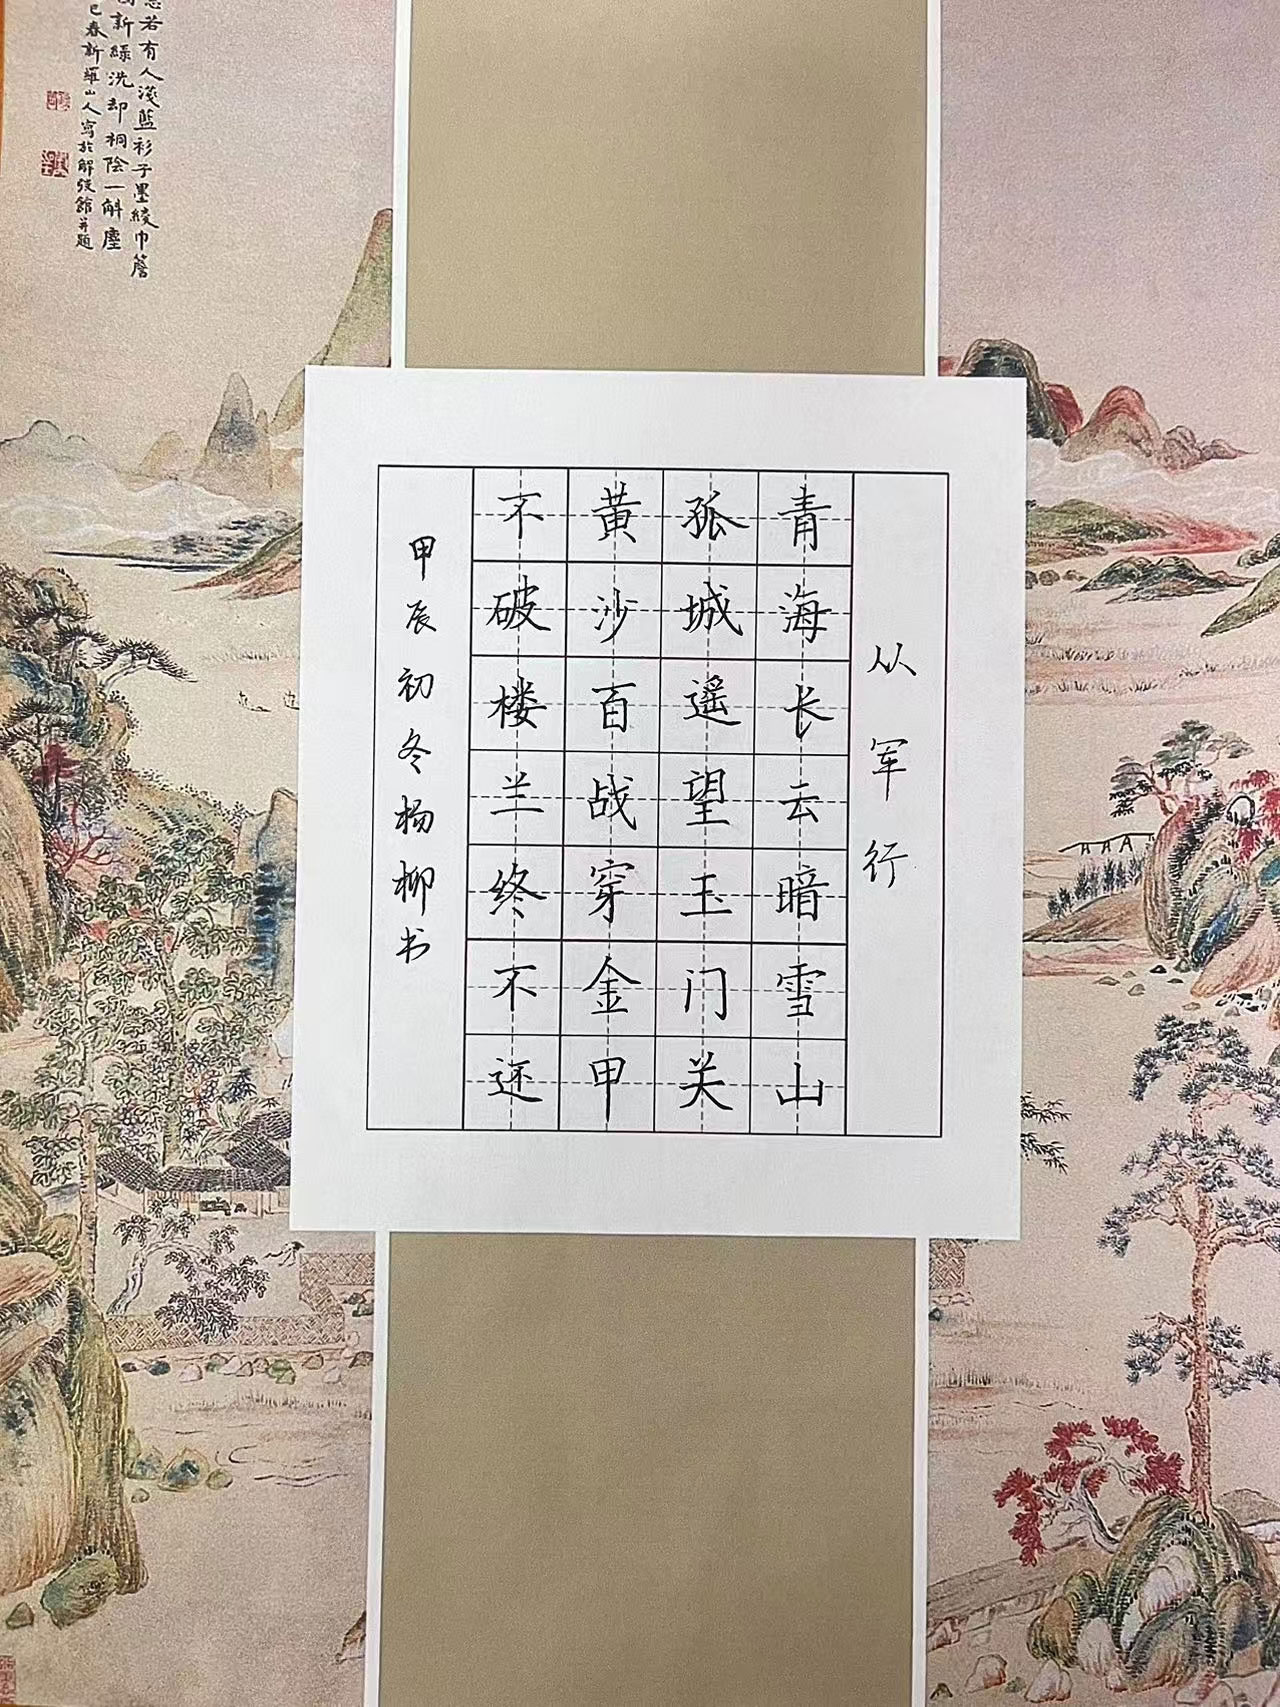 从军行
青海长云暗雪山
孤城遥望玉门关
黄沙百战穿金甲
不破楼兰终不还
甲辰初冬杨柳书
若有人淺藍衫子墨綾巾簷
新綠洗却桐陰一斛塵
巳春新羅山人寫於解弢館并題